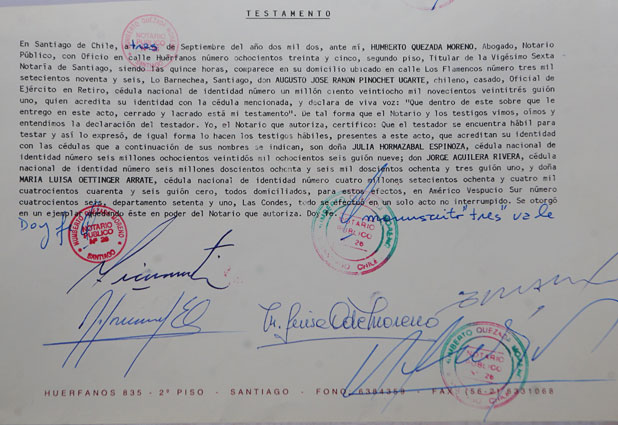 TESTAMENTO
En Santiago de Chile, a tres de Septiembre del año dos mil dos, ante mí, HUMBERTO QUEZADA MORENO. Abogado, Notario
Público, con Oficio en calle Huérfanos número ochocientos treinta y cinco, segundo piso, Titular de la Vigésimo Sexta
Notaría de Santiago, siendo las quince horas, comparece en su domicilio ubicado en calle Los Flamencos número tres mil
setecientos noventa y seis, Lo Barnechea, Santiago, don AUGUSTO JOSE RAMON PINOCHET UGARTE, chileno, casado, Oficial de
Ejército en Retiro, cédula nacional de identidad número un millón ciento veintiocho mil novecientos veintitrés guión
uno, quien acredita su identidad con la cédula mencionada, y declara de viva voz: "Que dentro de este sobre que le
entrego en este acto, cerrado y lacrado está mi testamento". De tal forma que el Notario y los testigos vimos, oímos y
entendimos la declaración del testador. Yo, el Notario que autoriza, certifico: Que el testador se encuentra hábil para
testar y así lo expresó, de igual forma lo hacen los testigos hábiles, presentes a este acto, que acreditan su identidad
con las cédulas que a continuación de sus nombres se indican, son doña JULIA HORMAZABAL ESPINOZA, cédula nacional de
identidad número seis millones ochocientos veintidós mil ochocientos seis guión nueve; don JORGE AGUILERA RIVERA, cédula
nacional de identidad número seis millones doscientos ochenta y seis mil doscientos ochenta y tres guión uno, y doña
MARIA LUISA OETTINGER ARRATE, cédula nacional de identidad número cuatro millones setecientos ochenta y cuatro mil
cuatrocientos cuarenta y seis guión cero, todos domiciliados, para estos efectos, en Américo Vespucio Sur número
cuatrocientos seis, departamento setenta y uno, Las Condes, todo se efectúo en un solo acto no interrumpido. Se otorgó
en un ejemplar quedando éste en poder del Notario que autoriza. Doy fe.
manuscrito "tres" vale
Doy fe
HUMBERTO QUEZADA MORENO
NOTARIO
PUBLICO
SANTIAGO
HUMBERTO QUEZADA MORENO
NOTARIO
PUBLICO
Nº 26
SANTIAGO
NOTARIO
PUBLICO
26
CHILE
M. Luisa O de Moreno
HUMBERTO QUEZADA MORENO
NOTARIO
PUBLICO
26
CHILE
HUERFANOS 835 - 2º PISO - SANTIAGO - FONO 6384359 - FAX (56-2) 6331068